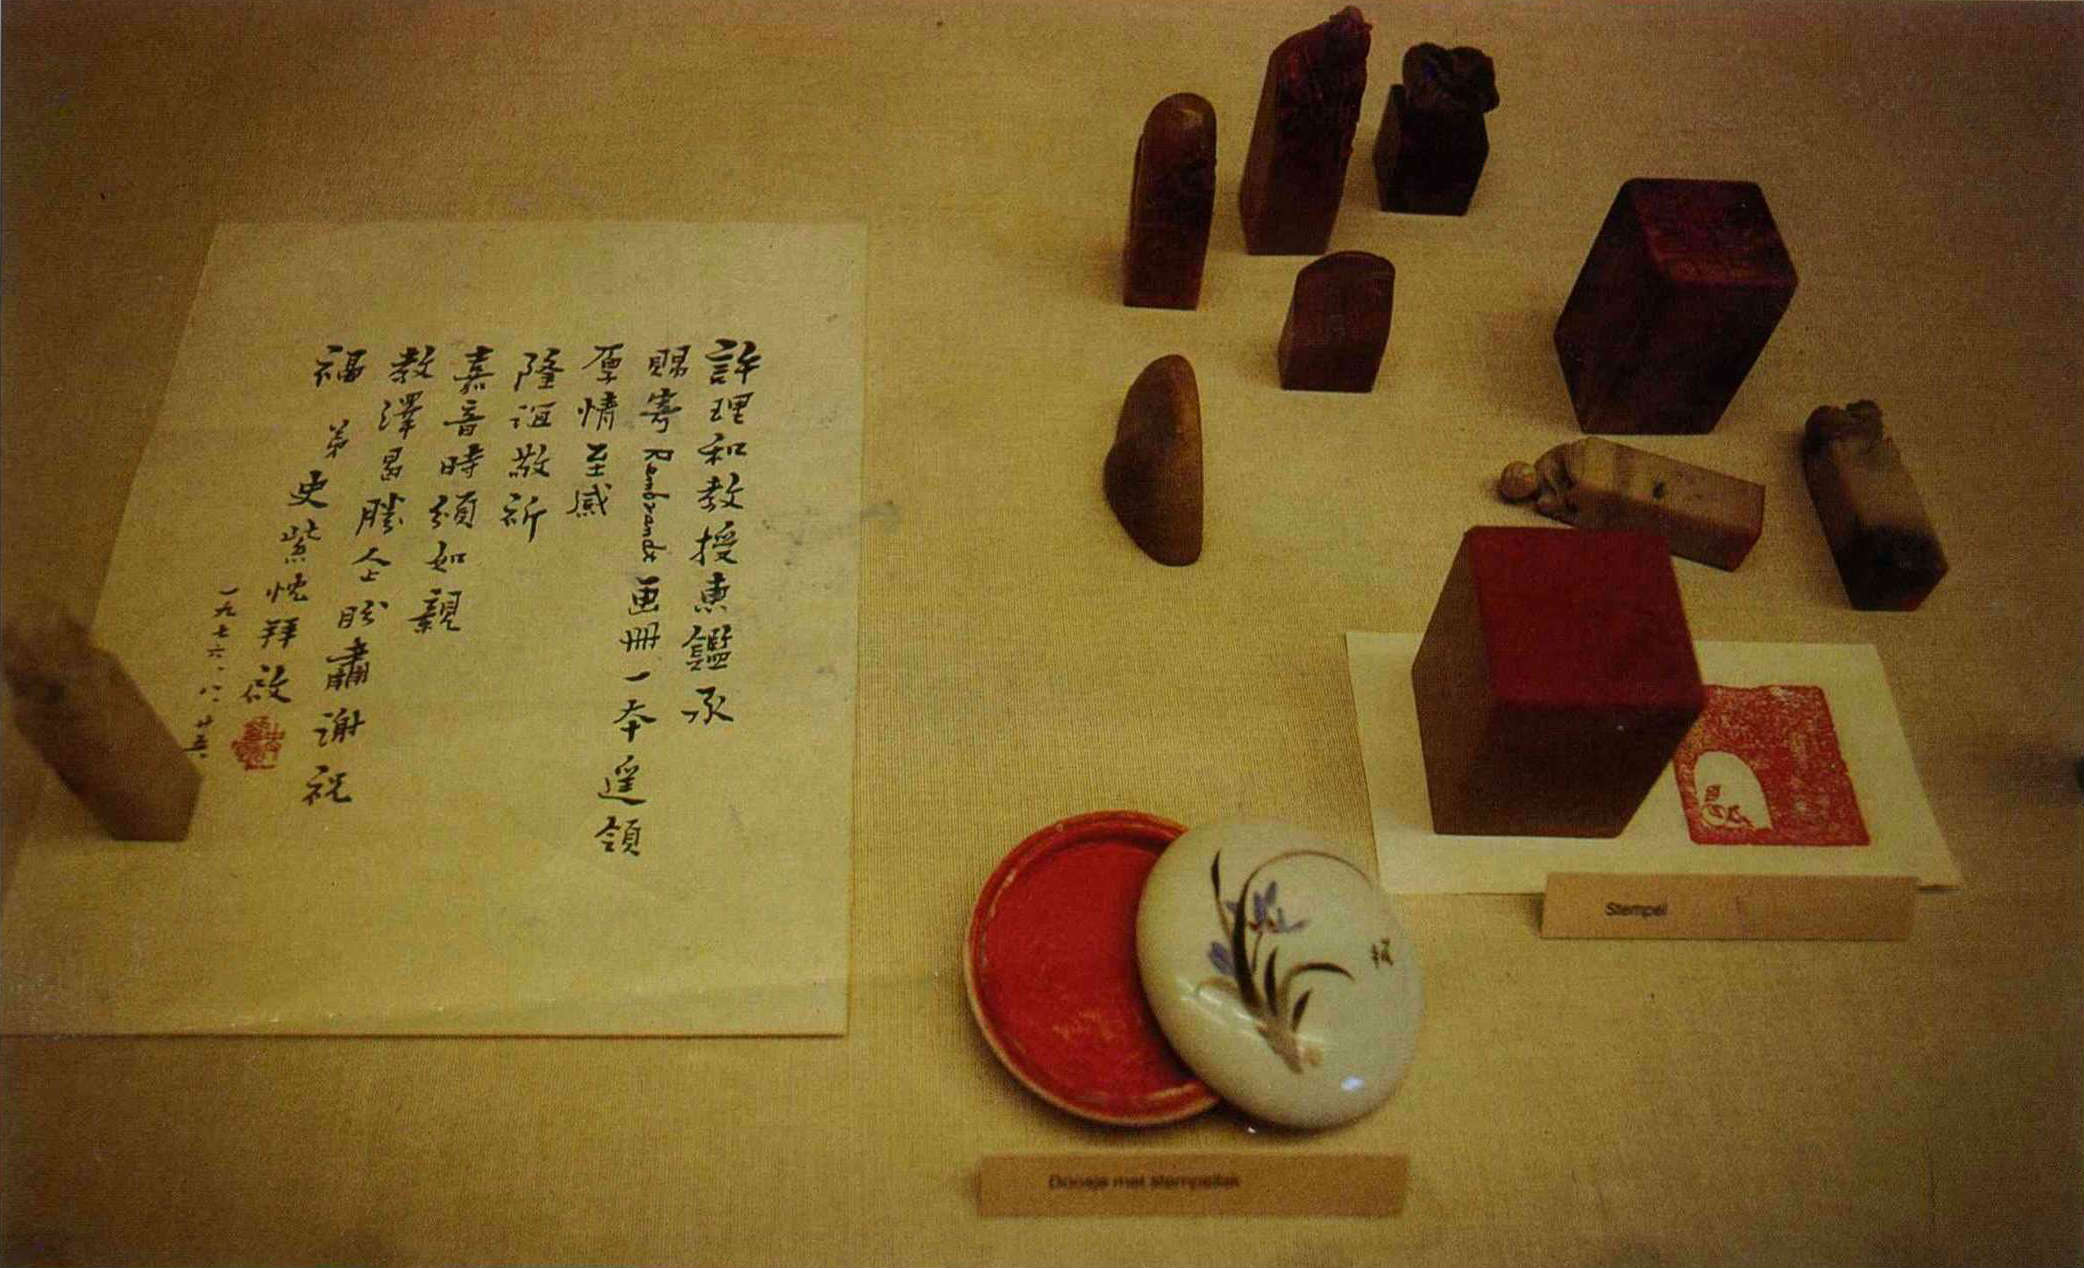 許理和教授惠鑑承
賜寄 Rembrandt 画冊一本遥領
厚情至感
隆誼敬祈
嘉音時頒如親
教澤曷勝企盼肅謝祝
福
弟 史紫忱拜啟
一九七六、八、廿五
Stempel
Doosje met stempellak